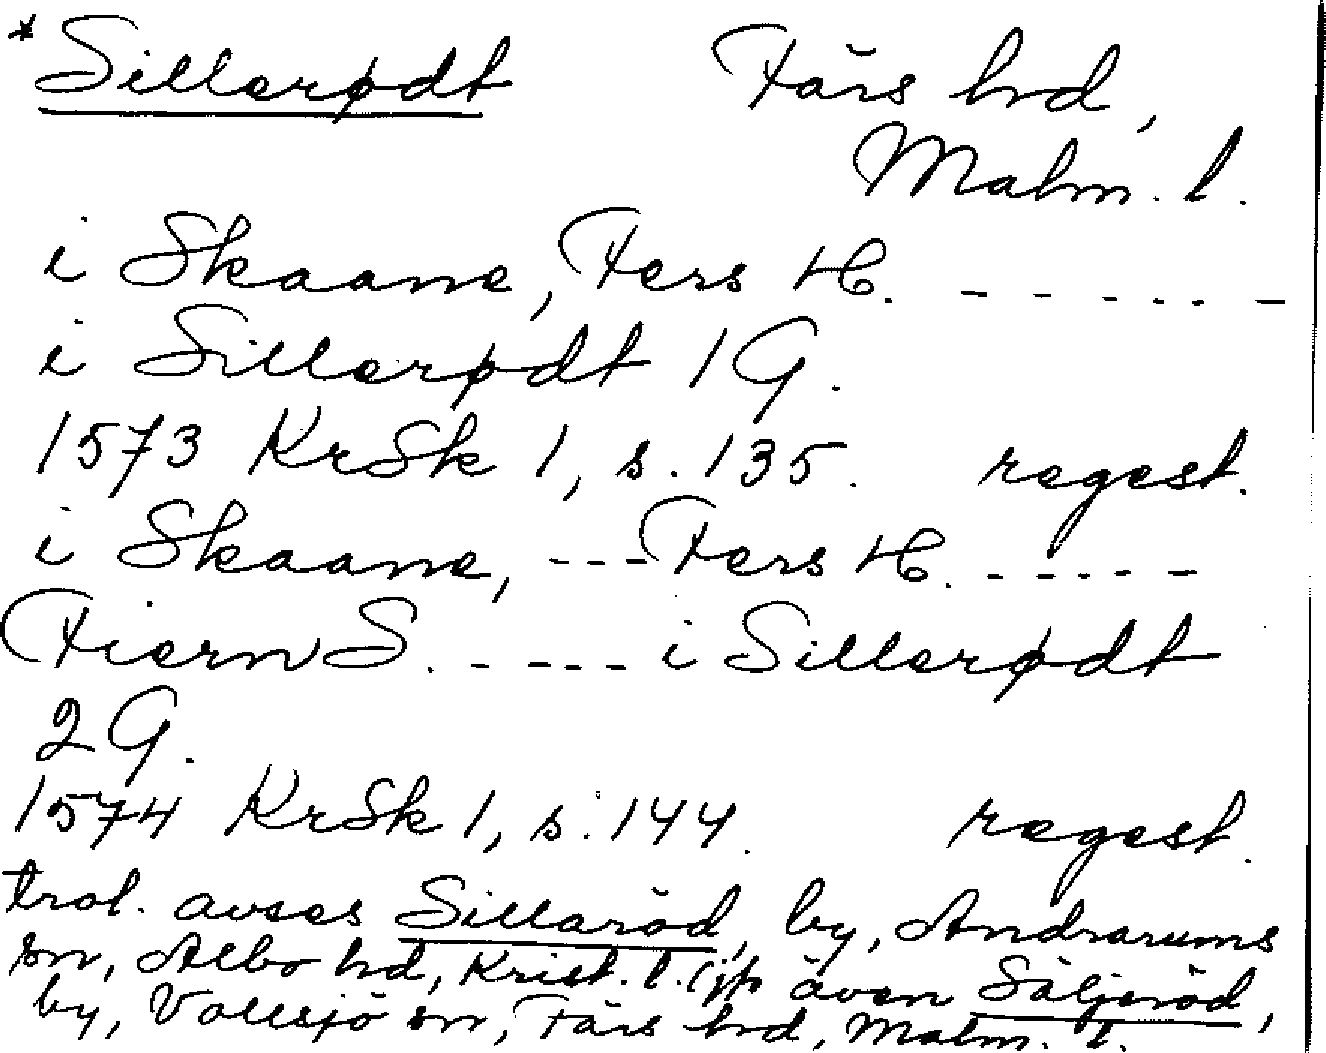 * Sillerødt Färs hd,
Malm. l.
i Skaane, Fers H. - - - - - -
i Sillerødt 1 G.
1573 KrSk 1, s. 135. regest.
i Skaane, - - - Fers H. - - - - -
Fiern S. - - - - - i Sillerødt
2 G.
1574 KrSk 1, s. 144. regest.
trol. avses Sillaröd, by, Andrarums
sn, Albo hd, Krist. l. (jfr även Säljeröd,
by, Vollsjö sn, Färs hd, Malm. l.